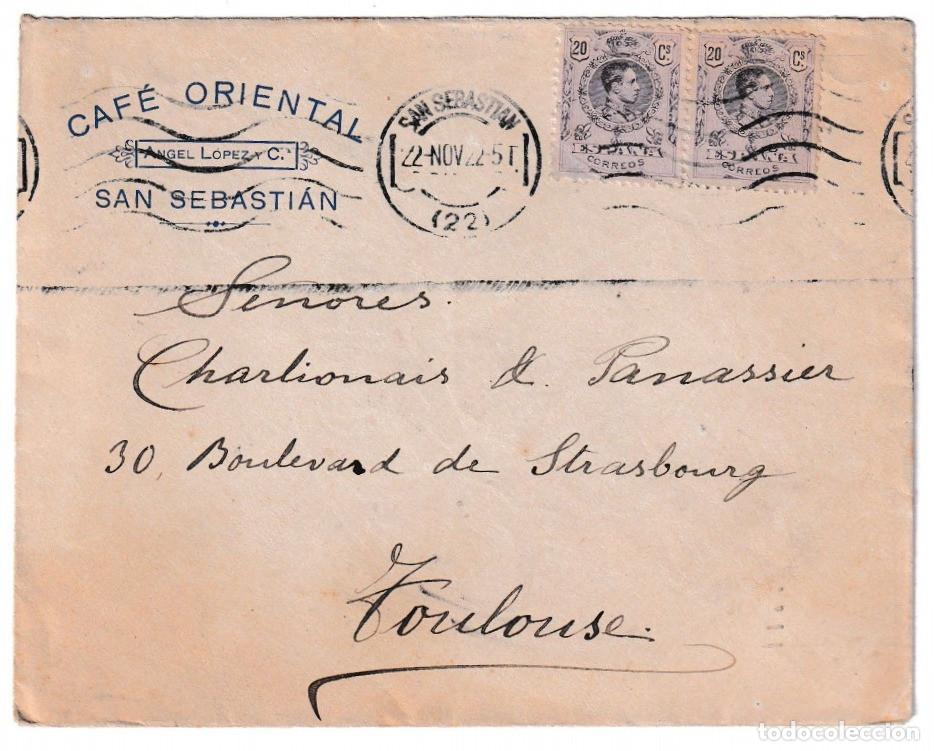 CAFÉ ORIENTAL
ÁNGEL LÓPEZ Y C.ª
SAN SEBASTIÁN
SAN SEBASTIAN
22-NOV 22-5T
(22)
20 Cs.
CORREOS
20 Cs.
CORREOS
Señores.
Charlionais & Panassier
30, Boulevard de Strasbourg
Toulouse.
todocoleccion